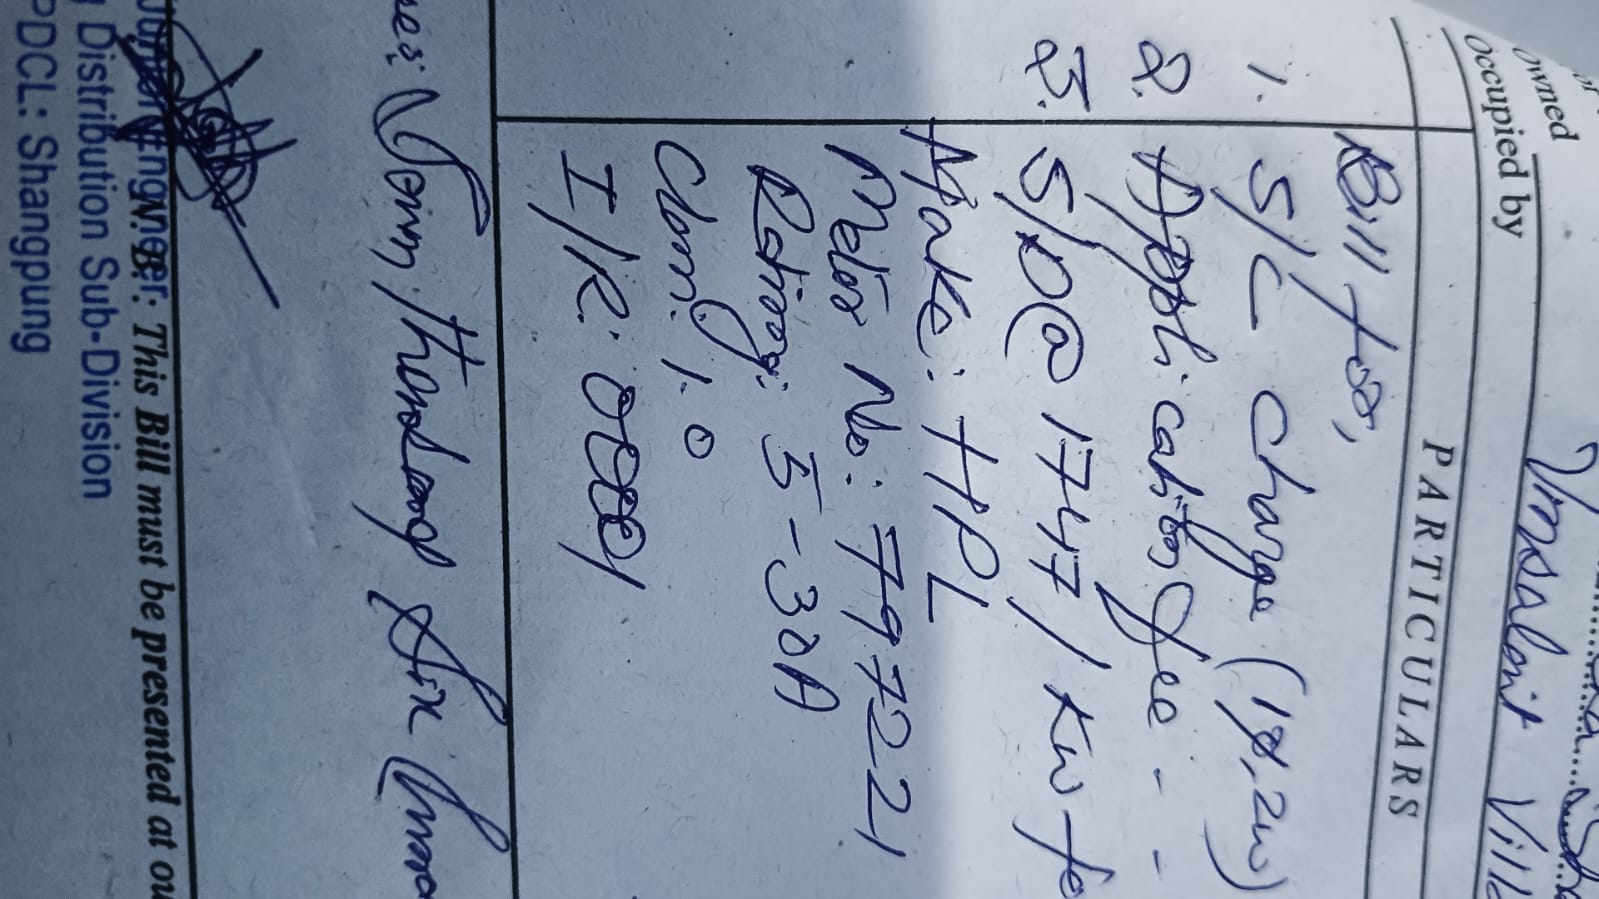 Owned
Occupied by
Umsalait Vill
PARTICULARS
Bill for,
1. S/C charge (1ø, 2w)
2. Application fee - -
3. S/D @ 1747/Kw fo
Make: HPL
Meter No: 7797221
Rating: 5-30A
Class: 1.0
I/R:
Thousand Six
N.B.: This Bill must be presented at ou
Distribution Sub-Division
PDCL: Shangpung